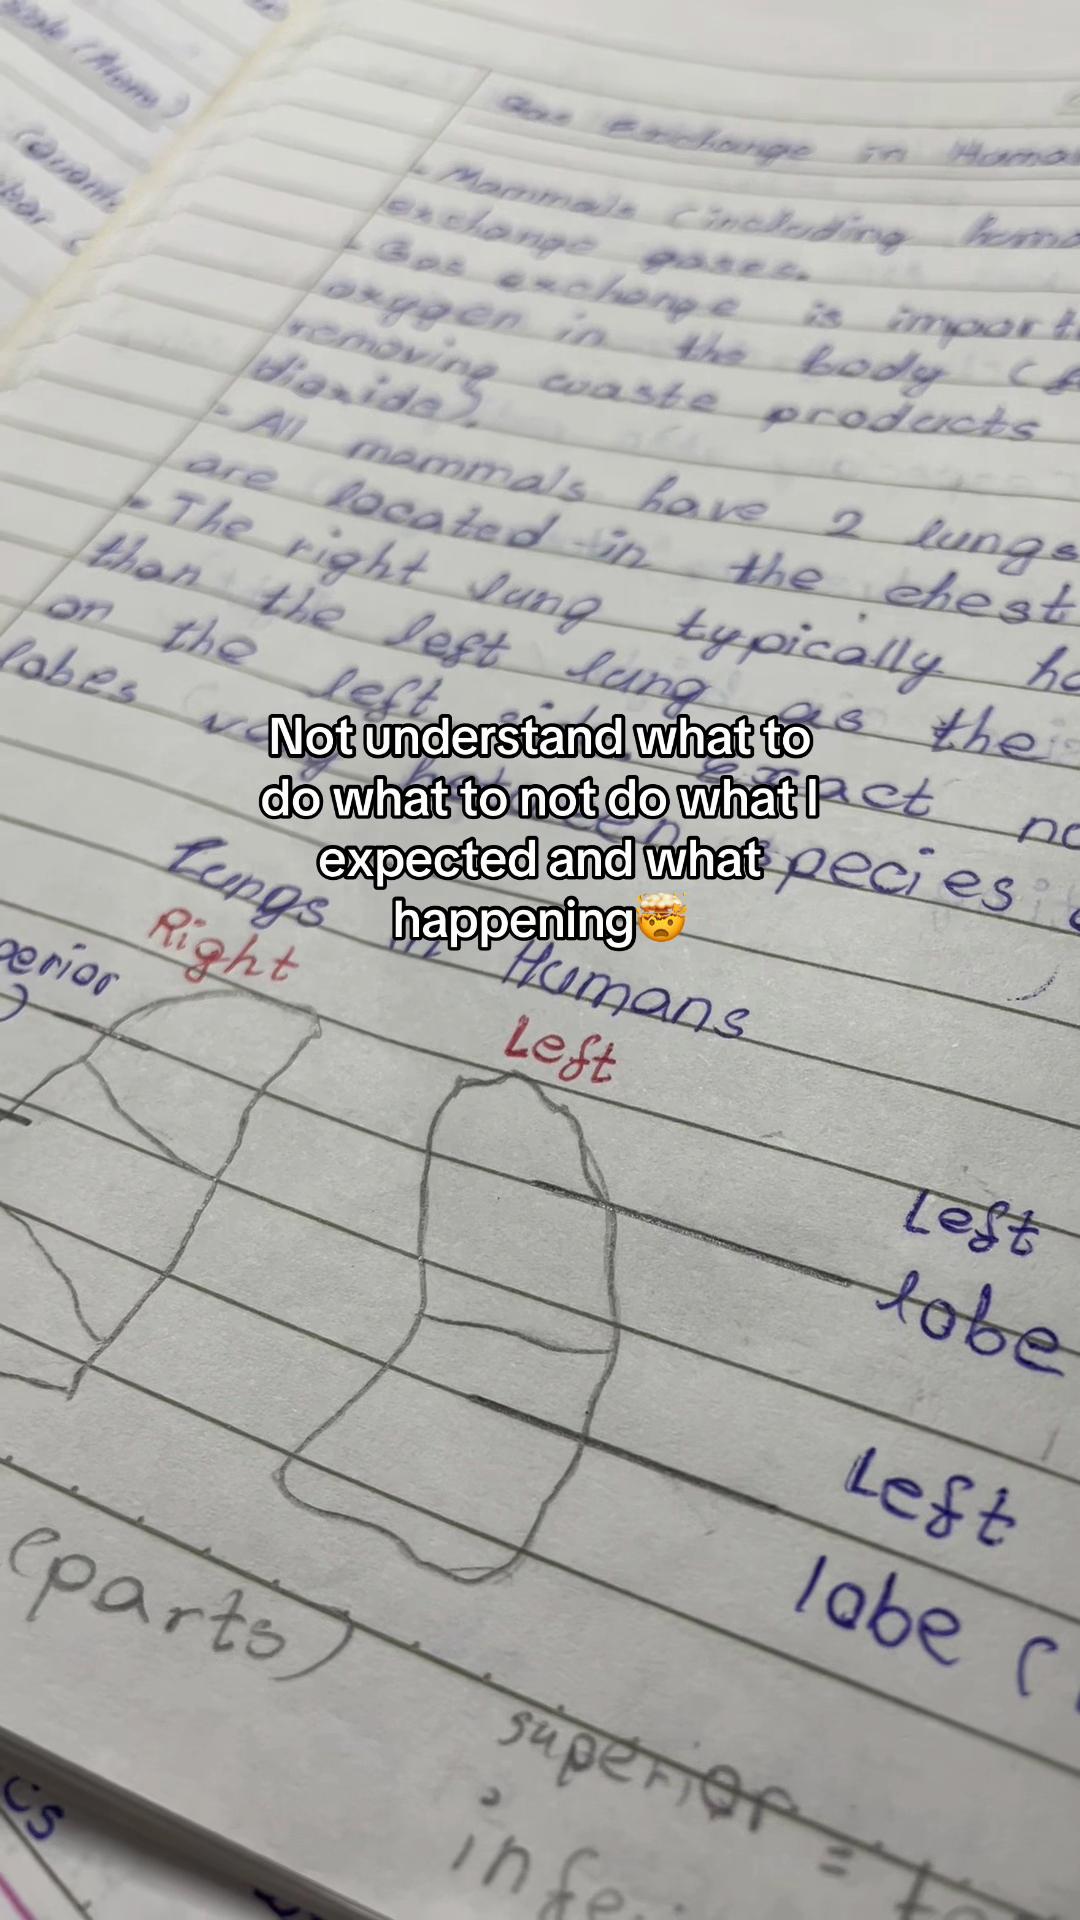 (Atom)
Gas Exchange in Huma
- Mammals (including huma
exchange gases.
- Gas exchange is import
oxygen in the body (
removing waste products
dioxide).
- All mammals have 2 lungs
are located in the chest
- The right lung typically ha
than the left lung as the
on the left exact no
lobes species
Not understand what to
do what to not do what I
expected and what
happening🤯
Lungs in Humans
Right
perior
Left
Left
lobe
Left
lobe (
(parts)
superior =
infe
cs